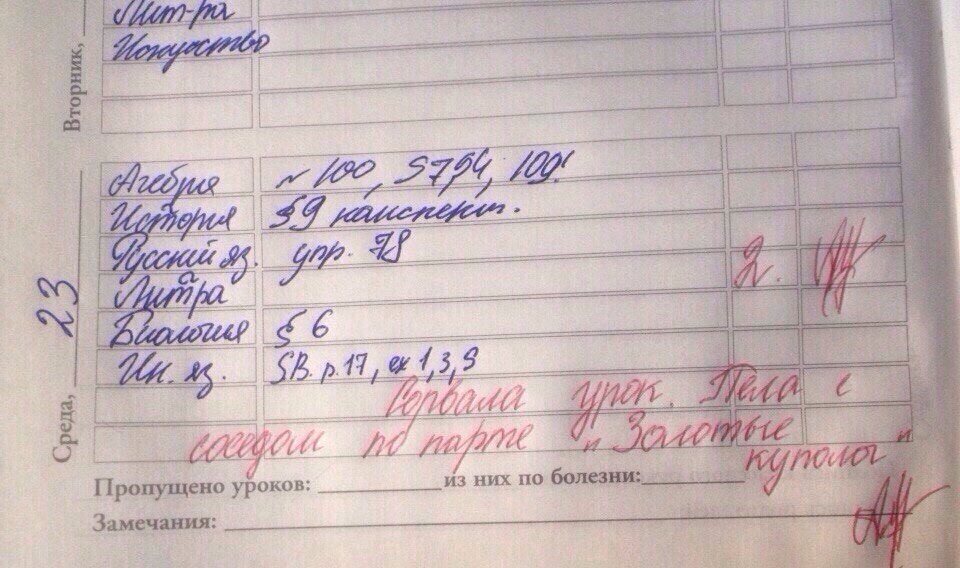 Вторник,
Лит-ра
Искусство
Среда, 23
Агебрия
~ 100, 5794, 109!
История
§9 канспект.
Русский яз.
упр. 78
2.
Литра
Биология
§ 6
Ин. яз.
SB. p. 17, ex 1,3,9
Сорвала урок. Пела с
соседом по парте "Золотые
купола"
Пропущено уроков: из них по болезни:
Замечания: